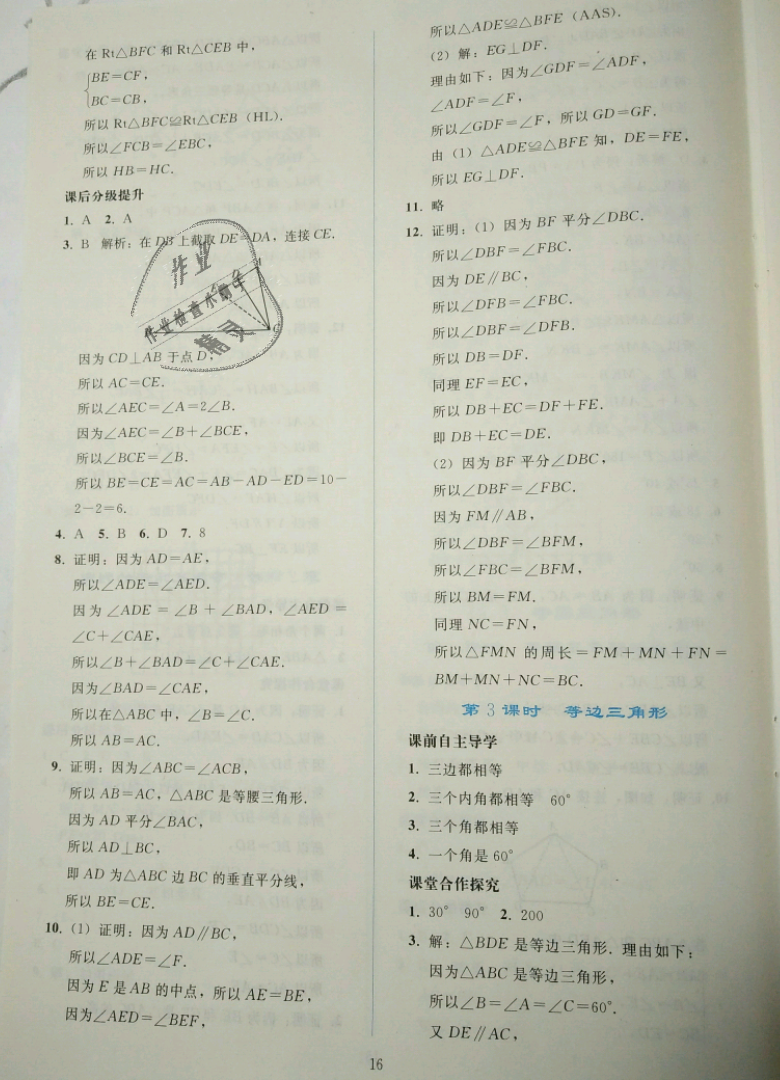 在 Rt△BFC 和 Rt△CEB 中，
BE＝CF，
BC＝CB，
所以 Rt△BFC≌Rt△CEB（HL）.
所以∠FCB＝∠EBC，
所以 HB＝HC.
课后分级提升
1. A 2. A
3. B 解析：在 DB 上截取 DE＝DA，连接 CE.
作业
作业检查小助手
精灵
因为 CD⊥AB 于点 D，
所以 AC＝CE.
所以∠AEC＝∠A＝2∠B.
因为∠AEC＝∠B＋∠BCE，
所以∠BCE＝∠B.
所以 BE＝CE＝AC＝AB－AD－ED＝10－
2－2＝6.
4. A 5. B 6. D 7. 8
8. 证明：因为 AD＝AE，
所以∠ADE＝∠AED.
因为∠ADE＝∠B＋∠BAD，∠AED＝
∠C＋∠CAE，
所以∠B＋∠BAD＝∠C＋∠CAE.
因为∠BAD＝∠CAE，
所以在△ABC 中，∠B＝∠C.
所以 AB＝AC.
9. 证明：因为∠ABC＝∠ACB，
所以 AB＝AC，△ABC 是等腰三角形.
因为 AD 平分∠BAC，
所以 AD⊥BC，
即 AD 为△ABC 边 BC 的垂直平分线，
所以 BE＝CE.
10. （1）证明：因为 AD∥BC，
所以∠ADE＝∠F.
因为 E 是 AB 的中点，所以 AE＝BE，
因为∠AED＝∠BEF，
所以△ADE≌△BFE（AAS）.
（2）解：EG⊥DF.
理由如下：因为∠GDF＝∠ADF，
∠ADF＝∠F，
所以∠GDF＝∠F，所以 GD＝GF.
由（1）△ADE≌△BFE 知，DE＝FE，
所以 EG⊥DF.
11. 略
12. 证明：（1）因为 BF 平分∠DBC.
所以∠DBF＝∠FBC.
因为 DE∥BC，
所以∠DFB＝∠FBC.
所以∠DBF＝∠DFB.
所以 DB＝DF.
同理 EF＝EC，
所以 DB＋EC＝DF＋FE.
即 DB＋EC＝DE.
（2）因为 BF 平分∠DBC，
所以∠DBF＝∠FBC.
因为 FM∥AB，
所以∠DBF＝∠BFM，
所以∠FBC＝∠BFM，
所以 BM＝FM.
同理 NC＝FN，
所以△FMN 的周长＝FM＋MN＋FN＝
BM＋MN＋NC＝BC.
第 3 课时 等边三角形
课前自主导学
1. 三边都相等
2. 三个内角都相等 60°
3. 三个角都相等
4. 一个角是 60°
课堂合作探究
1. 30° 90° 2. 200
3. 解：△BDE 是等边三角形. 理由如下：
因为△ABC 是等边三角形，
所以∠B＝∠A＝∠C＝60°.
又 DE∥AC，
16